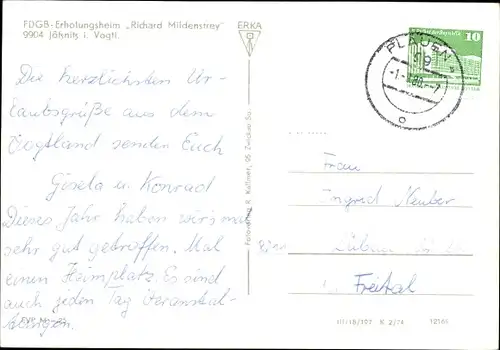 FDGB-Erholungsheim „Richard Mildenstrey"
9904 Jößnitz i. Vogtl.
ERKA
Die herzlichsten Ur-
laubsgrüße aus dem
Vogtland senden Euch
Gisela u. Konrad
Dieses Jahr haben wir's mal
sehr gut getroffen. Mal
einen Heimplatz. Es sind
auch jeden Tag Veranstal-
tungen.
EVP M
Fotoverlag R. Kallmer, 95 Zwickau Sa.
PLAUEN
10
Frau
Ingrid Neuber
Freital
III/18/197 K 2/74